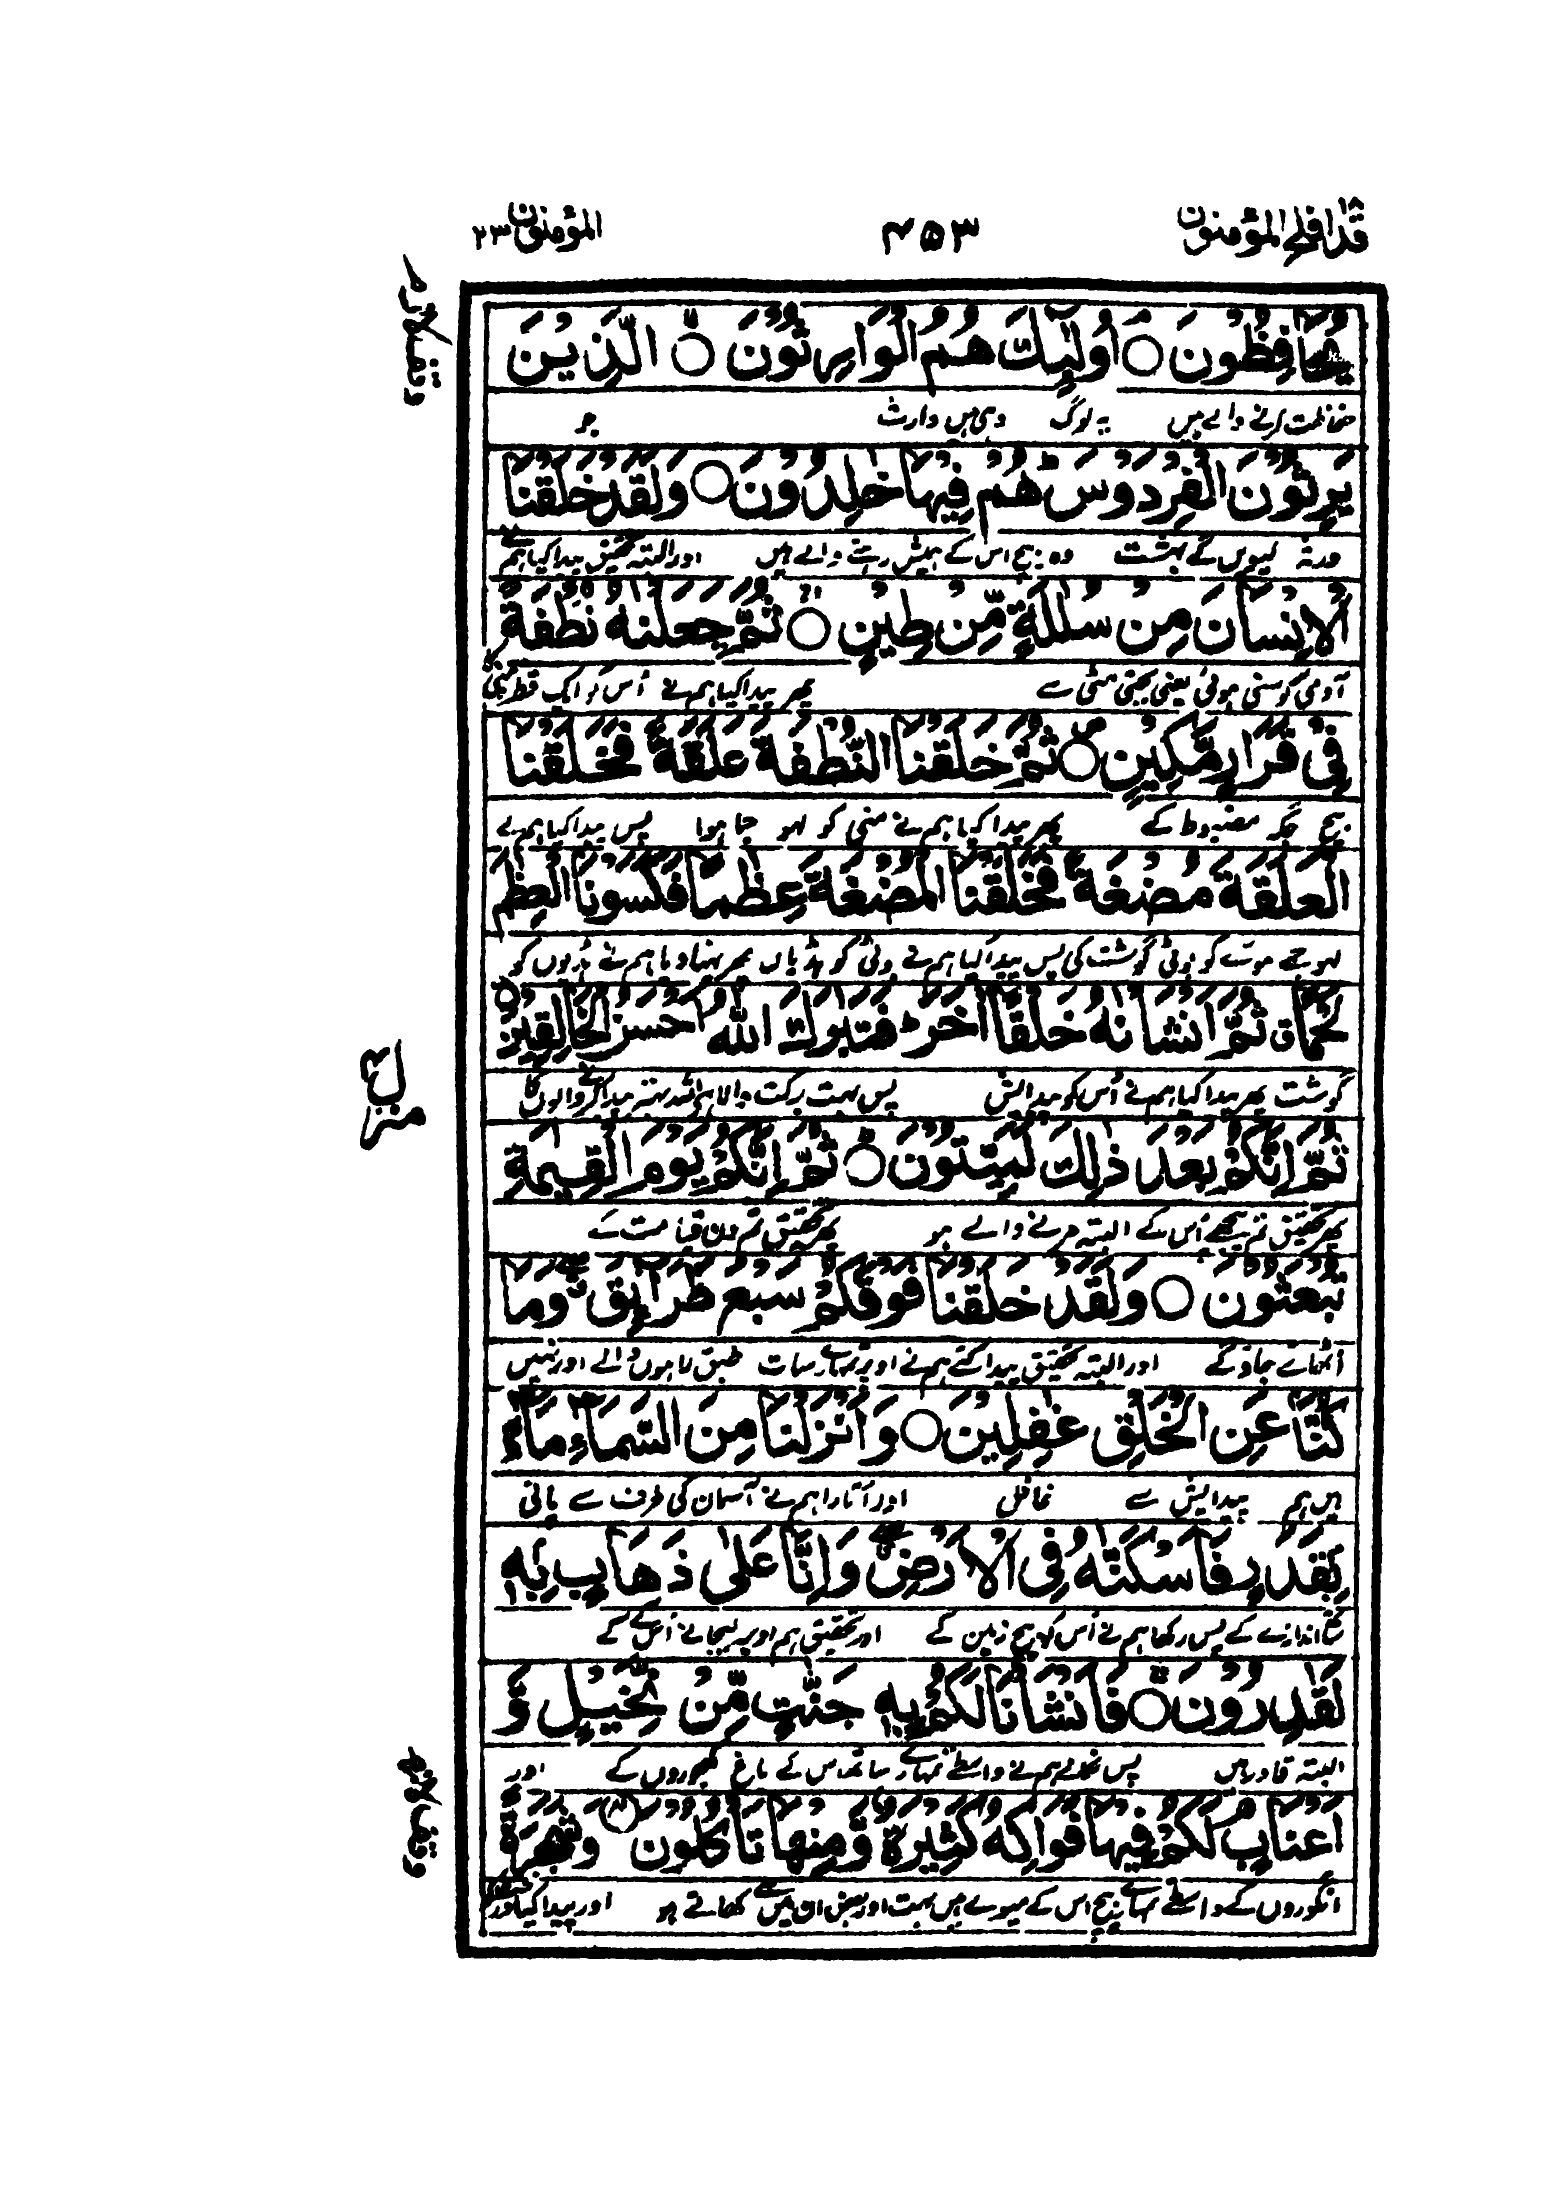 قد افلح المؤمنون ۱۸ ۴۵۳ المؤمنون ۲۳
يُحَافِظُونَ ○ اُولٰٓئِكَ هُمُ الْوَارِثُونَ ○ الَّذِينَ
محافظت کرنے والے ہیں یہ لوگ وہی ہیں وارث جو
يَرِثُونَ الْفِرْدَوْسَ ؕ هُمْ فِيهَا خٰلِدُونَ ○ وَلَقَدْ خَلَقْنَا
ورثہ لیویں گے بہشت وہ بیچ اس کے ہمیش رہنے والے ہیں اور البتہ تحقیق پیدا کیا ہم نے
الْاِنْسَانَ مِنْ سُلٰلَةٍ مِّنْ طِينٍ ○ ثُمَّ جَعَلْنٰهُ نُطْفَةً
آدمی کو سنی ہوئی یعنی بجتی مٹی سے پھر پیدا کیا ہم نے اُس کو ایک قطرہ منی
فِي قَرَارٍ مَّكِينٍ ○ ثُمَّ خَلَقْنَا النُّطْفَةَ عَلَقَةً فَخَلَقْنَا
بیچ جگہ مضبوط کے پھر پیدا کیا ہم نے منی کو لہو جما ہوا پس پیدا کیا ہم نے
الْعَلَقَةَ مُضْغَةً فَخَلَقْنَا الْمُضْغَةَ عِظٰمًا فَكَسَوْنَا الْعِظٰمَ
لہو جمے ہوئے کو بوٹی گوشت کی پس پیدا کیا ہم نے بوٹی کو ہڈیاں پھر پہنا دیا ہم نے ہڈیوں کو
لَحْمًا ق ثُمَّ اَنْشَاْنٰهُ خَلْقًا اٰخَرَ ؕ فَتَبٰرَكَ اللّٰهُ اَحْسَنُ الْخَالِقِينَ ○
گوشت پھر پیدا کیا ہم نے اُس کو پیدائش پس بہت برکت والا ہے اللہ بہتر پیدا کرنے والوں کا
ثُمَّ اِنَّكُمْ بَعْدَ ذٰلِكَ لَمَيِّتُونَ ○ ثُمَّ اِنَّكُمْ يَوْمَ الْقِيٰمَةِ
پھر تحقیق تم پیچھے اُس کے البتہ مرنے والے ہو پھر تحقیق تم دن قیامت کے
تُبْعَثُونَ ○ وَلَقَدْ خَلَقْنَا فَوْقَكُمْ سَبْعَ طَرَآئِقَ وَمَا
اُٹھائے جاؤ گے اور البتہ تحقیق پیدا کئے ہم نے اوپر تمہارے سات طبق راہوں والے اور نہیں
كُنَّا عَنِ الْخَلْقِ غٰفِلِينَ ○ وَاَنْزَلْنَا مِنَ السَّمَآءِ مَآءً
ہیں ہم پیدائش سے غافل اور اُتارا ہم نے آسمان کی طرف سے پانی
بِقَدَرٍ فَاَسْكَنّٰهُ فِي الْاَرْضِ وَاِنَّا عَلٰى ذَهَابٍ بِهٖ
اندازے کے پس رکھا ہم نے اُس کو بیچ زمین کے اور تحقیق ہم اوپر لیجانے اُس کے
لَقٰدِرُونَ ○ فَاَنْشَاْنَا لَكُمْ بِهٖ جَنّٰتٍ مِّنْ نَّخِيلٍ وَّ
البتہ قادر ہیں پس نکالے ہم نے واسطے تمہارے ساتھ اس کے باغ کھجوروں کے اور
اَعْنَابٍ لَكُمْ فِيهَا فَوَاكِهُ كَثِيرَةٌ وَّمِنْهَا تَاْكُلُونَ وَشَجَرَةً
انگوروں کے واسطے تمہارے بیچ اس کے میوے ہیں بہت اور بعض ان میں سے کھاتے ہو اور پیدا کیا
وقف لازم
منزل ۴
وقف